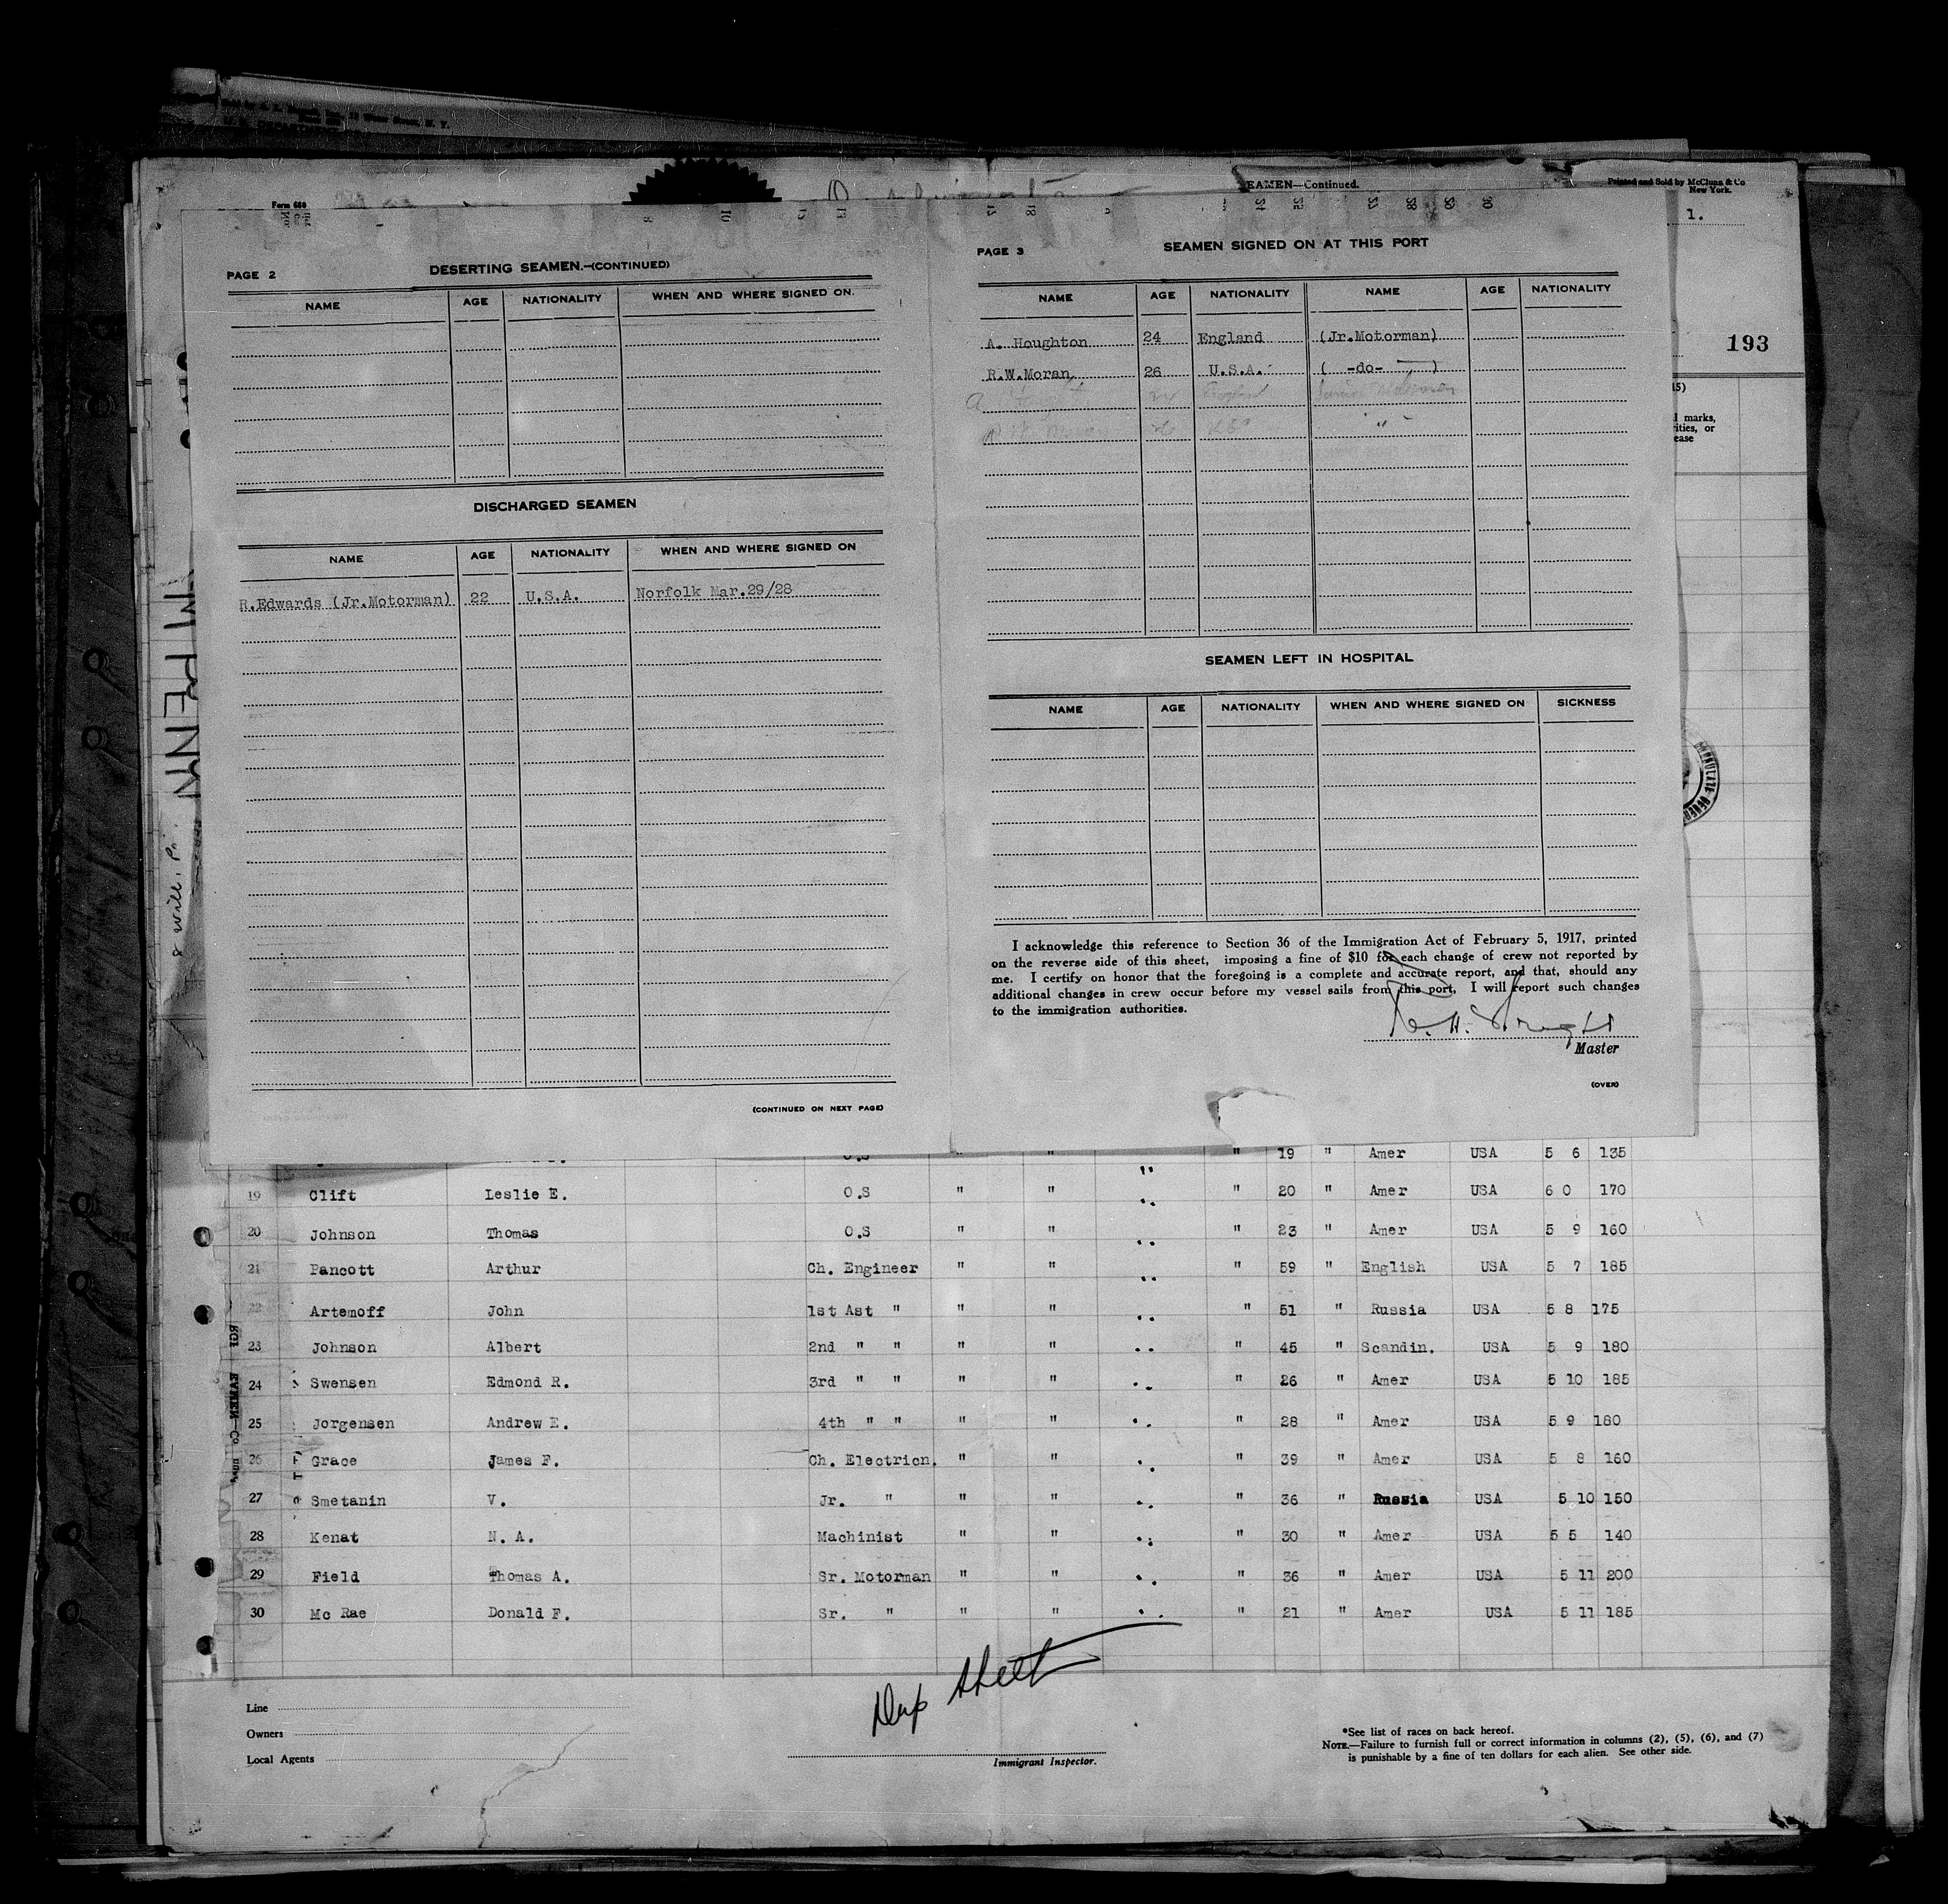 EAMEN—Continued.
Printed and Sold by McClung & Co
New York.
1.
Form 680
193
l marks,
ities, or
ease
PAGE 2
DESERTING SEAMEN.—(CONTINUED)
NAME AGE NATIONALITY WHEN AND WHERE SIGNED ON.
DISCHARGED SEAMEN
NAME AGE NATIONALITY WHEN AND WHERE SIGNED ON
R.Edwards (Jr.Motorman) 22 U.S.A. Norfolk Mar.29/28
(CONTINUED ON NEXT PAGE)
PAGE 3
SEAMEN SIGNED ON AT THIS PORT
NAME AGE NATIONALITY NAME AGE NATIONALITY
A. Houghton 24 England (Jr.Motorman)
R.W.Moran 26 U.S.A. ( -do- )
SEAMEN LEFT IN HOSPITAL
NAME AGE NATIONALITY WHEN AND WHERE SIGNED ON SICKNESS
I acknowledge this reference to Section 36 of the Immigration Act of February 5, 1917, printed
on the reverse side of this sheet, imposing a fine of $10 for each change of crew not reported by
me. I certify on honor that the foregoing is a complete and accurate report, and that, should any
additional changes in crew occur before my vessel sails from this port, I will report such changes
to the immigration authorities.
Master
(OVER)
O.S " " " " 19 " Amer USA 5 6 135
19 Clift Leslie E. O.S " " " " 20 " Amer USA 6 0 170
20 Johnson Thomas O.S " " " " 23 " Amer USA 5 9 160
21 Pancott Arthur Ch. Engineer " " " " 59 " English USA 5 7 185
22 Artemoff John 1st Ast " " " " " 51 " Russia USA 5 8 175
23 Johnson Albert 2nd " " " " " " 45 " Scandin. USA 5 9 180
24 Swensen Edmond R. 3rd " " " " " " 26 " Amer USA 5 10 185
25 Jorgensen Andrew E. 4th " " " " " " 28 " Amer USA 5 9 180
26 Grace James F. Ch. Electricn. " " " " 39 " Amer USA 5 8 160
27 Smetanin V. Jr. " " " " " 36 " Russia USA 5 10 150
28 Kenat N. A. Machinist " " " " 30 " Amer USA 5 5 140
29 Field Thomas A. Sr. Motorman " " " " 36 " Amer USA 5 11 200
30 Mc Rae Donald F. Sr. " " " " " 21 " Amer USA 5 11 185
Dup sheet
Line
Owners
Local Agents
Immigrant Inspector.
*See list of races on back hereof.
NOTE.—Failure to furnish full or correct information in columns (2), (5), (6), and (7)
is punishable by a fine of ten dollars for each alien. See other side.